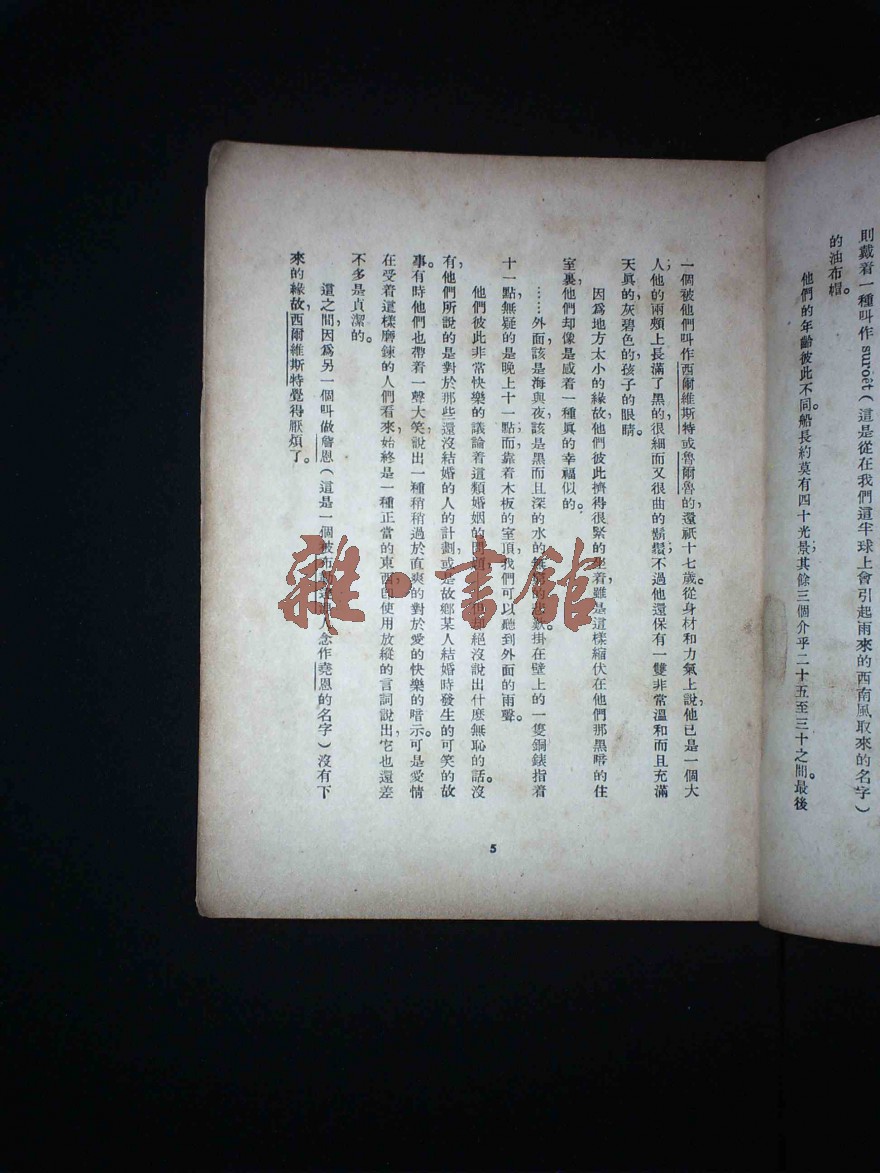 則戴着一種叫作suroët（這是從在我們這半球上會引起雨來的西南風取來的名字）
的油布帽。
他們的年齡彼此不同。船長約莫有四十光景；其餘三個介乎二十五至三十之間。最後
一個被他們叫作西爾維斯特或魯爾魯的，還祇十七歲。從身材和力氣上說，他已是一個大
人；他的兩頰上長滿了黑的，很細而又很曲的鬍鬚；不過他還保有一雙非常溫和而且充滿
天眞的，灰碧色的，孩子的眼睛。
因爲地方太小的緣故，他們彼此擠得很緊的坐着，雖是這樣縮伏在他們那黑暗的住
室裏，他們却像是感着一種眞的幸福似的。
……外面，該是海與夜，該是黑而且深的水的無窮的悲歎。掛在壁上的一隻銅錶指着
十一點，無疑的是晚上十一點；而靠着木板的室頂，我們可以聽到外面的雨聲。
他們彼此非常快樂的議論着這類婚姻的問題，但却絕沒說出什麽無恥的話。沒
有，他們所說的是對於那些還沒結婚的人的計劃，或是故鄉某人結婚時發生的可笑的故
事。有時他們也帶着一聲大笑，說出一種稍稍過於直爽的對於愛的快樂的暗示。可是愛情
在受着這樣磨鍊的人們看來，始終是一種正當的東西，卽使用放縱的言詞說出，它也還差
不多是貞潔的。
這之間，因爲另一個叫做詹恩（這是一個被布勒達邇人念作堯恩的名字）沒有下
來的緣故，西爾維斯特覺得厭煩了。
5
雜·書館